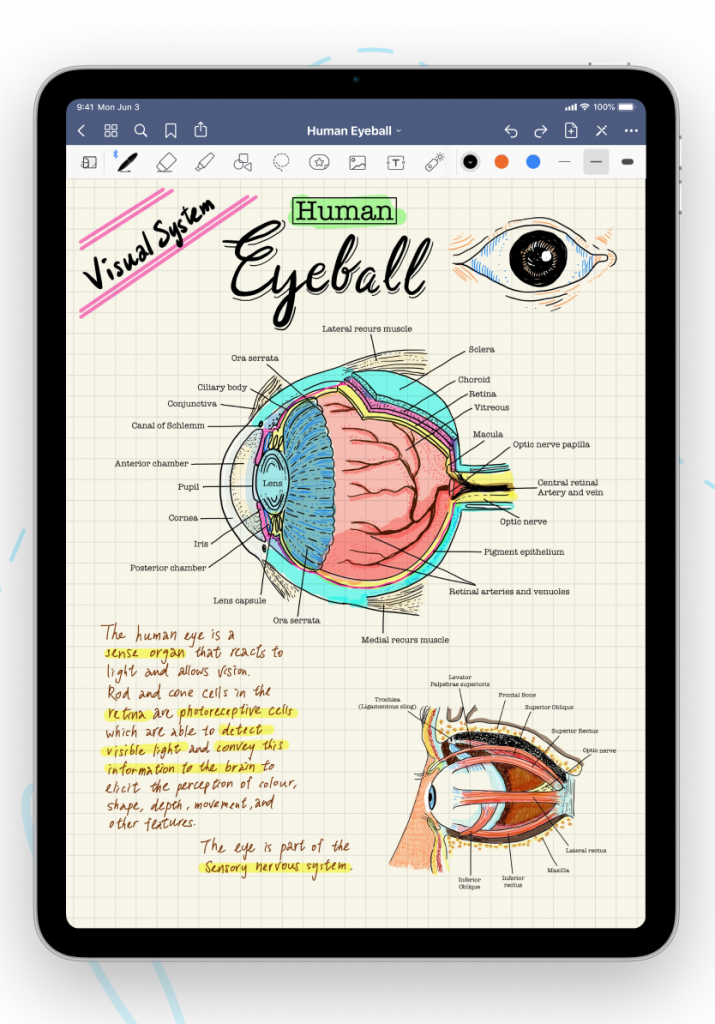 9:41 Mon Jun 3
100%
Human Eyeball
Visual System
Human
Eyeball
Lateral recurs muscle
Ora serrata
Sclera
Ciliary body
Choroid
Retina
Conjunctiva
Vitreous
Canal of Schlemm
Macula
Optic nerve papilla
Anterior chamber
Lens
Central retinal
Artery and vein
Pupil
Cornea
Optic nerve
Iris
Pigment epithelium
Posterior chamber
Retinal arteries and venuoles
Lens capsule
Ora serrata
Medial recurs muscle
The human eye is a
sense organ that reacts to
light and allows vision.
Rod and cone cells in the
retina are photoreceptive cells
which are able to detect
visible light and convey this
information to the brain to
elicit the perception of colour,
shape, depth, movement, and
other features.
The eye is part of the
Sensory nervous system.
Levator
Palpebrae superioris
Trochlea
(Ligamentous sling)
Frontal Bone
Superior Oblique
Superior Rectus
Optic nerve
Lateral rectus
Maxilla
Inferior
Oblique
Inferior
rectus